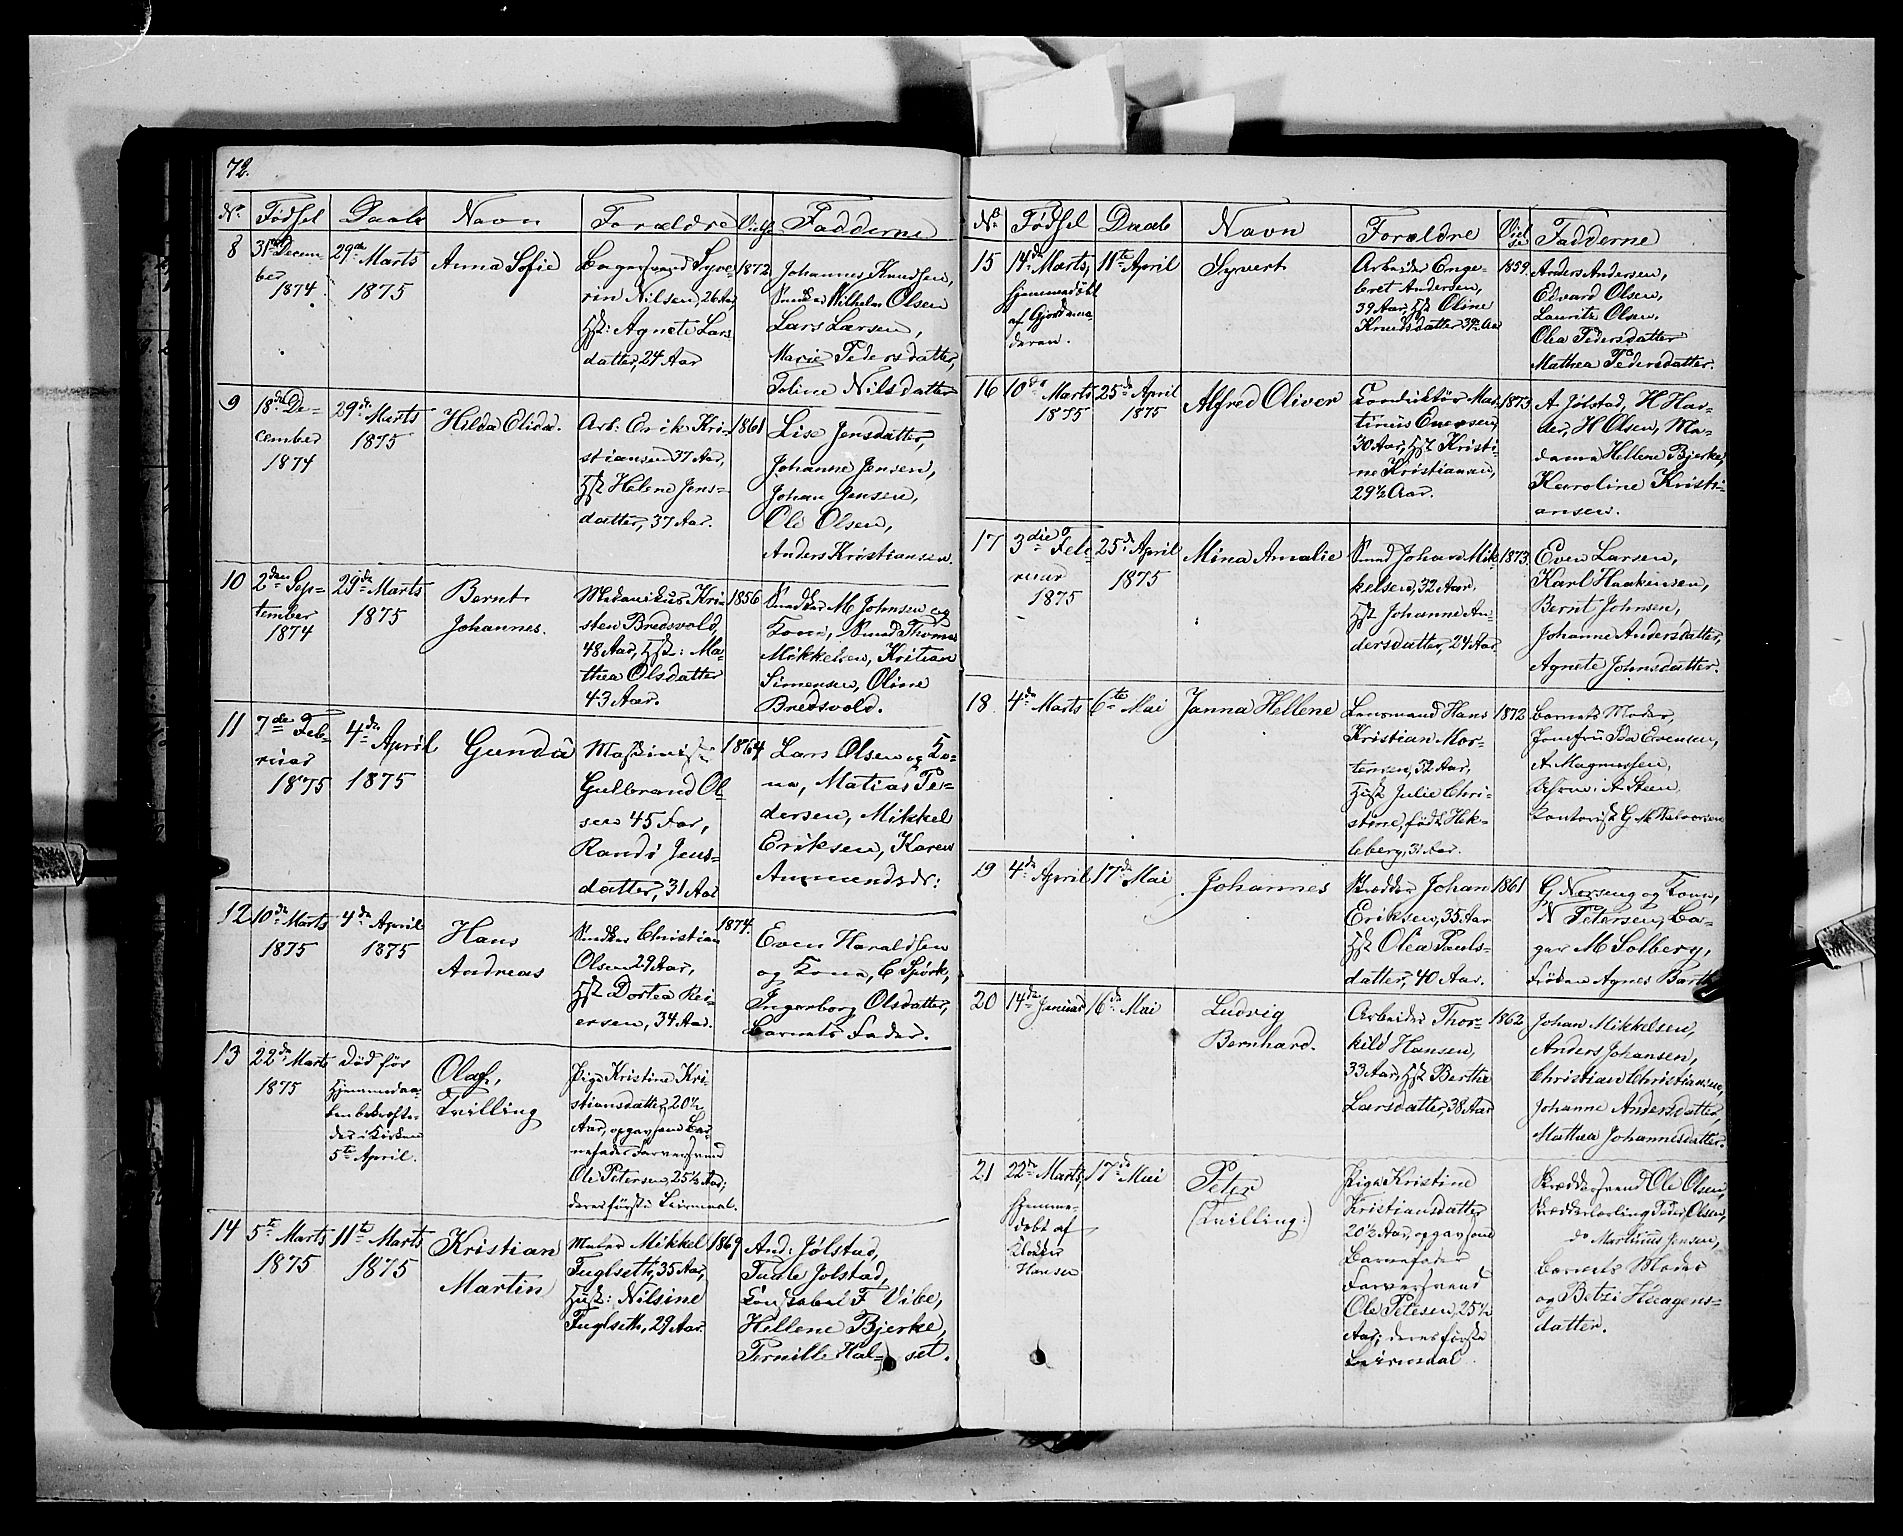 72.
No. Fødsel Daab Navn Forældre Vielse Fadderne
8 31te Decem-
ber
1874
29de Marts
1875
Anna Sofie
Bagersvend Syve-
rin Nilsen, 26 Aar,
Hst: Agnete Lars
datter, 24 Aar
1872
Johannes Knudsen,
Snedker Wilhelm Olsen
Lars Larsen,
Marie Pedersdatter,
Toline Nilsdatter
9 18de De-
cember
1874
29de Marts
1875
Hilda Elida.
Arb: Erik Kri-
stiansen 37 Aar,
Hst Helene Jens-
datter, 37 Aar.
1861
Lise Jensdatter,
Johanne Jensen,
Johan Jensen,
Ole Olsen,
Anders Kristiansen
10 2den Sep-
tember
1874
29de Marts
1875
Bernt
Johannes.
Mekanikus Kri-
sten Bredsvold,
48 Aar, Hst: Ma-
thea Olsdatter
43 Aar.
1856
Snedker M. Johnsen og
Kone, Smed Thomas
Mikkelsen, Kritian
Simensen, Oline
Bredsvold.
11 7de Feb-
ruar
1875
4de April
1875
Gunda
Maskinist
Gulbrand Ol-
sen 45 Aar,
Randi Jens-
datter, 31 Aar
1864
Lars Olsen og Ko-
na, Matias Pe-
dersen, Mikkel
Eriksen, Karen
Amundsdr:
12 10de Marts
1875
4de April
1875
Hans
Andreas
Snedker Christian
Olsen 29 Aar,
Hst Dortea Rei-
ersen, 34 Aar.
1874.
Even Haraldsen
og Kona, C Spørk,
Ingerborg Olsdatter,
Barnets Fader.
13 22de Marts
1875
Død før
Hjemmedaa-
ben bekræfte-
des i Kirken
5te April.
Olaf,
Tvilling
Pige Kristine Kri-
stiansdatter, 20½
Aar, opgav som Bar-
nefader Farversvend
Ole Petersen, 25½ Aar;
deres første Leiermaal.
14 5te Marts
1875
11te Marts
1875
Kristian
Martin
Maler Mikkel
Fuglseth, 35 Aar,
Hust: Nilsine
Fuglseth, 29 Aar.
1869
And: Jølstad,
Tuale Jolstad,
Konstabel F Vibe,
Hellene Bjerke,
Pernille Hal- set.
No. Fødsel Daab Navn Forældre Viel-
se Fadderne
15 14de Marts,
hjemmedøbt
af Gjordemo-
deren.
11te April
Syvert
Arbeider Enge-
bret Andersen,
39 Aar, Hst Oline
Knudsdatter 39 Aar
1859.
Anders Andersen,
Edvard Olsen,
Lauritz Olsen,
Olea Pedersdatter
Mathea Pedersdatter.
16 10de Marts
1875
25de April
1875
Alfred Oliver
Konduktør Mar-
tinius Enersen,
30 Aar, Hst Kristi-
ne Kristiansen,
29½ Aar.
1873
A. Jølstad, H Har-
der, H Olsen, Ma-
dama Hellene Bjerke,
Karoline Kristi-
ansen.
17 3die Feb-
ruar
1875
25de April
1875
Mina Amalie
Smed Johan Mik-
kelsen, 32 Aar.
Hst Johanne An-
dersdatter, 24 Aar.
1873.
Even Larsen,
Karl Haakensen,
Bernt Johnsen,
Johanne Andersdatter,
Agnete Johnsdatter.
18. 4de Marts
6te Mai
Janna Hellene
Lensmand Hans
Kristian Mor-
tensen, 32 Aar,
Hust Julie Chri-
stine, født Hek-
leberg, 31 Aar.
1872
Barnets Moder,
Jomfru Ida Evensen,
A. Magnussen,
A Steen,
Kontorist G. M. Halvorsen
19 4de April
17de Mai
Johannes
Skrædder Johan
Eriksen, 35 Aar
Hst Olea Pauls-
datter, 40 Aar.
1861
G Nerseng og Kone,
N Petersen, Ba-
ger M Solberg,
Frøken Agnes Barth
20 14de Januar
16de Mai
Ludvig
Bernhard.
Arbeider Thor-
kild Hansen,
33 Aar, Hst Berthe
Larsdatter, 38 Aar
1862
Johan Mikkelsen,
Anders Johansen,
Christian Christiansen,
Johanne Andersdatter,
Mathea Johannesdatter.
21 22de Marts,
hjemme-
døbt af
Klokker
Hansen
17de Mai
Peter
(Tvilling.)
Pige Kristine
Kristiansdatter
20½ Aar, opgav som
Barnefader
Farversvend
Ole Petesen, 25½
Aar; deres første
Leiermaal.
Skræddersvend Ole Olsen,
Skrædderlærling Peder Olsen,
do Martinus Jensen,
Barnets Moder
og Betzi Haagens-
datter.